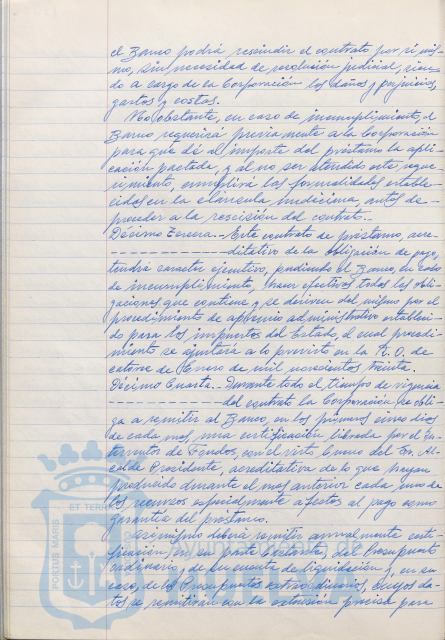 el Banco podrá rescindir el contrato por sí mis-
mo, sin necesidad de resolución judicial, sien-
do a cargo de la Corporación los daños y perjuicios,
gastos y costas.
No obstante, en caso de incumplimiento, el
Banco requerirá previamente a la Corporación
para que dé al importe del préstamo la apli-
cación pactada, y al no ser atendido este reque-
rimiento, cumplirá las formalidades estable-
cidas en la cláusula undécima, antes de
proceder a la rescisión del contrato.-
Décimo Tercera.- Este contrato de préstamo, acre-
ditativo de la obligación de pago,
tendrá carácter ejecutivo, pudiendo el Banco, en caso
de incumplimiento, hacer efectivas todas las obli-
gaciones que contiene y se deriven del mismo por el
procedimiento de apremio administrativo estableci-
do para los impuestos del Estado, el cual procedi-
miento se ajustará a lo previsto en la R.O. de
catorce de Enero de mil novecientos treinta.
Décimo Cuarta.- Durante todo el tiempo de vigencia
del contrato la Corporación se obli-
ga a remitir al Banco, en los primeros cinco días
de cada mes, una certificación librada por el In-
terventor de Fondos, con el visto bueno del Sr. Al-
calde Presidente, acreditativa de lo que hayan
producido durante el mes anterior cada uno de
los recursos especialmente afectos al pago como
garantía del préstamo.
Asimismo deberá remitir anualmente certi-
ficación, en su parte bastante, del Presupuesto
ordinario, de su cuenta de liquidación y, en su
caso, de los Presupuestos extraordinarios, cuyos da-
tos se remitirán con la extensión precisa para
PORTUS MARIS ET TERR